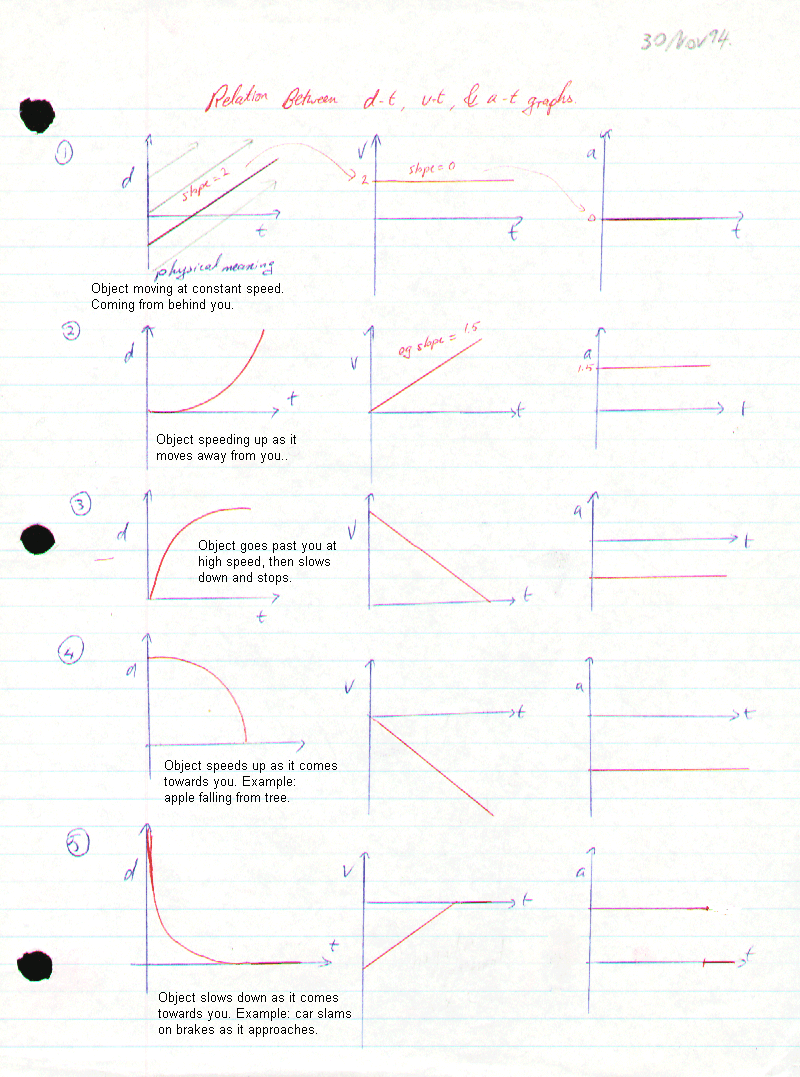 30/Nov 94.
Relation Between d-t, v-t, & a-t graphs.
① d slope = 2 t V 2 slope = 0 t a 0 t
physical meaning
Object moving at constant speed.
Coming from behind you.
② d t V eg slope = 1.5 t a 1.5 t
Object speeding up as it
moves away from you..
③ d t V t a t
Object goes past you at
high speed, then slows
down and stops.
④ d V t a t
Object speeds up as it comes
towards you. Example:
apple falling from tree.
⑤ d t V t a t
Object slows down as it comes
towards you. Example: car slams
on brakes as it approaches.